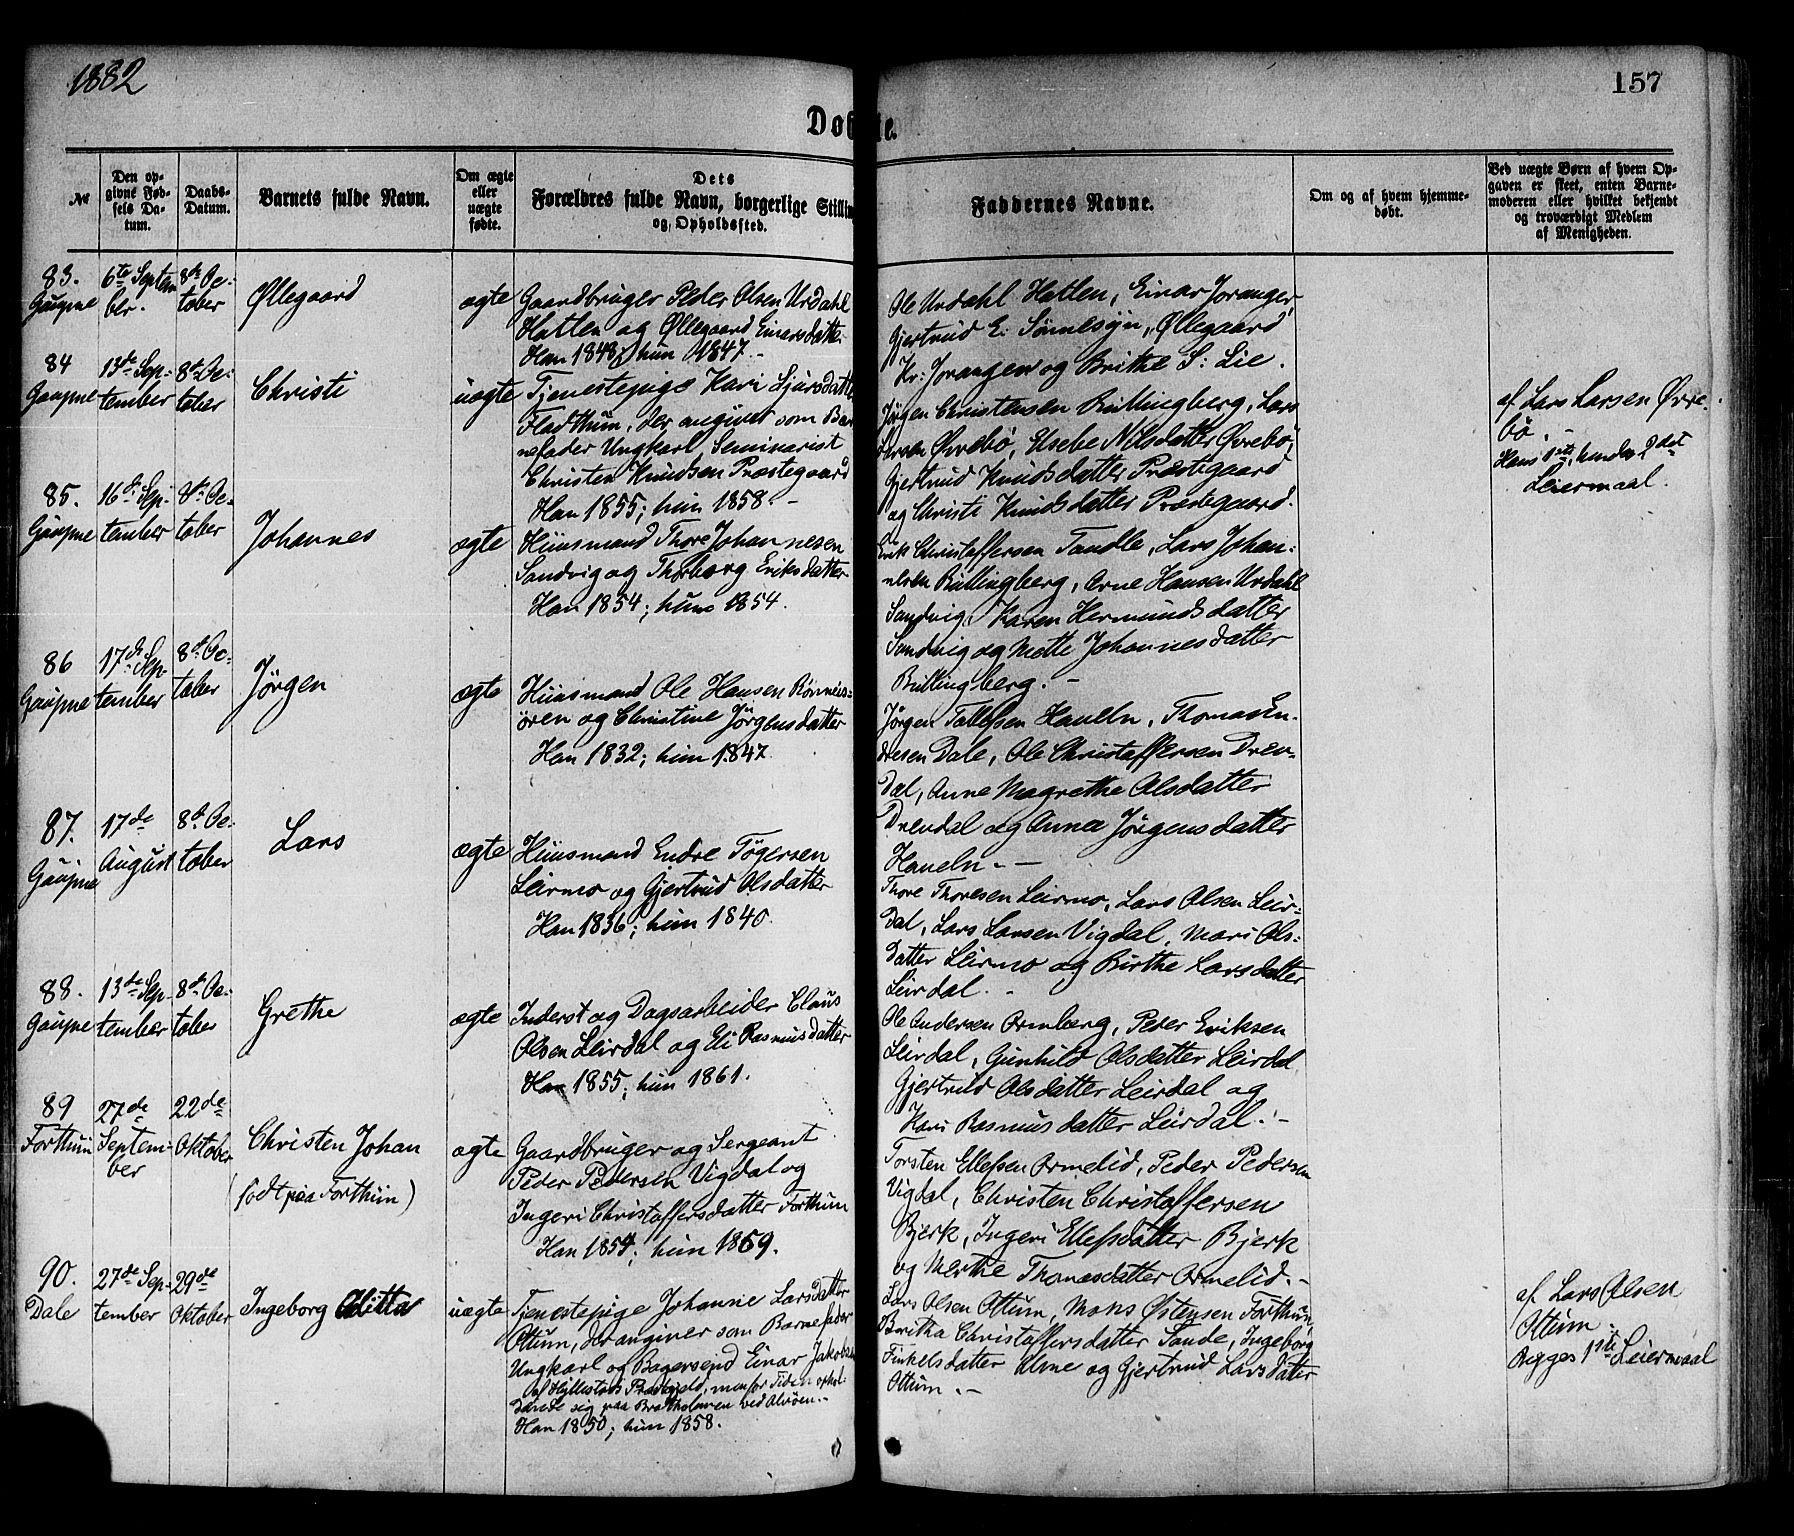 1882
157
Døbte.
No
Den opgivne Fødsels Datum.
Daabs-Datum.
Barnets fulde Navn.
Om ægte eller uægte fødte.
Dets Forældres fulde Navn, borgerlige Stilling og Opholdssted.
Faddernes Navne.
Om og af hvem hjemmedøbt.
Ved uægte Børn af hvem Opgaven er skeet, enten Barnemoderen eller hvilket bekjendt og troværdigt Medlem af Menigheden.
83. Gaupne
6te September.
8de October
Øllegaard
ægte
Gaardbruger Peder Olsen Urdahl
Hatlen og Øllegaard Einarsdatter
Han 1848; hun 1847.
Ole Urdahl Hatlen, Einar Joranger,
Gjertrud E: Sømesÿn, Øllegaard
Kr: Joranger og Brithe S: Lie.
84 Gaupne
13de September
8de October
Christi
uægte
Tjenestepige Kari Sjursdatter
Fladthum, der angivet som Bar
nefader Ungkarl, Seminarist
Christen Knudsen Præstegaard
Han 1855; hun 1858.
Jørgen Christensen Bullingberg, Lars
Larsen Øvrebø, Elsebe Nilsdatter Øvrebø,
Gjertrud Knudsdatter Præstegaard
og Christi Knudsdatter Præstegaard.
af Lars Larsen Øvre
bø.
Hans 1ste, hendes 2det
Leiermaal.
85. Gaupne
16de September
8de October
Johannes
ægte
Huusmand Thore Johannesen
Sandvig og Thorborg Eriksdatter
Han 1854; hun 1854.
Erik Christaffersen Tandle, Lars Johan-
nesen Bullingberg, Arne Hansen Urdahl
Sandvig, Karen Hermundsdatter
Sandvig og Mette Johannesdatter
Bullingberg.
86 Gaupne
17de September
8de October
Jørgen
ægte
Huusmand Ole Hansen Rønneis-
øren og Christine Jørgensdatter
Han 1832; hun 1847.
Jørgen Tollefsen Haueln, Thomas En-
dresen Dale, Ole Christaffersen Drev-
dal, Anne Magrethe Olsdatter
Drevdal og Anna Jørgensdatter
Haueln.
87. Gaupne
17de August
8de October
Lars
ægte
Huusmand Endre Tøgersen
Leirmo og Gjertrud Olsdatter
Han 1836; hun 1840.
Thore Thoresen Leirmo, Lars Olsen Leir-
dal, Lars Larsen Vigdal, Mari Ols-
datter Leirmo og Birthe Larsdatter
Leirdal.
88. Gaupne
13de September
8de October
Grethe
ægte
Inderst og Dagsarbeider Claus
Olsen Leirdal og Eli Rasmusdatter
Han 1855; hun 1861.
Ole Andersen Ormberg, Peder Eriksen
Leirdal, Gunhild Olsdatter Leirdal
Gjertrud Olsdatter Leirdal og
Kari Rasmusdatter Leirdal.
89 Forthun
27de September
22de Oktober
Christen Johan
(født paa Forthun)
ægte
Gaardbruger og Sergeant
Peder Pedersen Vigdal og
Ingeri Christaffersdatter Forthun
Han 1854; hun 1859.
Torsten Ellefsen Ormelid, Peder Pedersen
Vigdal, Christen Christaffersen
Bjerk, Ingeri Ellefsdatter Bjerk
og Merthe Thomasdatter Ormelid.
90. Dale
27de September
29de Oktober
Ingeborg Olitta
uægte
Tjenestepige Johanne Larsdatter
Ottum, der angiver som Barnefader
Ungkarl og Bagersvend Einar Jakobsen
af Hyllestads Præstegjeld, men for Tiden ophol
dende sig paa Bratholmen ved Alvøen.
Han 1850; hun 1858.
Lars Olsen Ottum, Mons Østensen Forthun,
Beritha Christaffersdatter Sande, Ingeborg
Finkelsdatter Alme og Gjertrud Larsdatter
Ottum.
af Lars Olsen
Ottum.
Begges 1ste Leiermaal